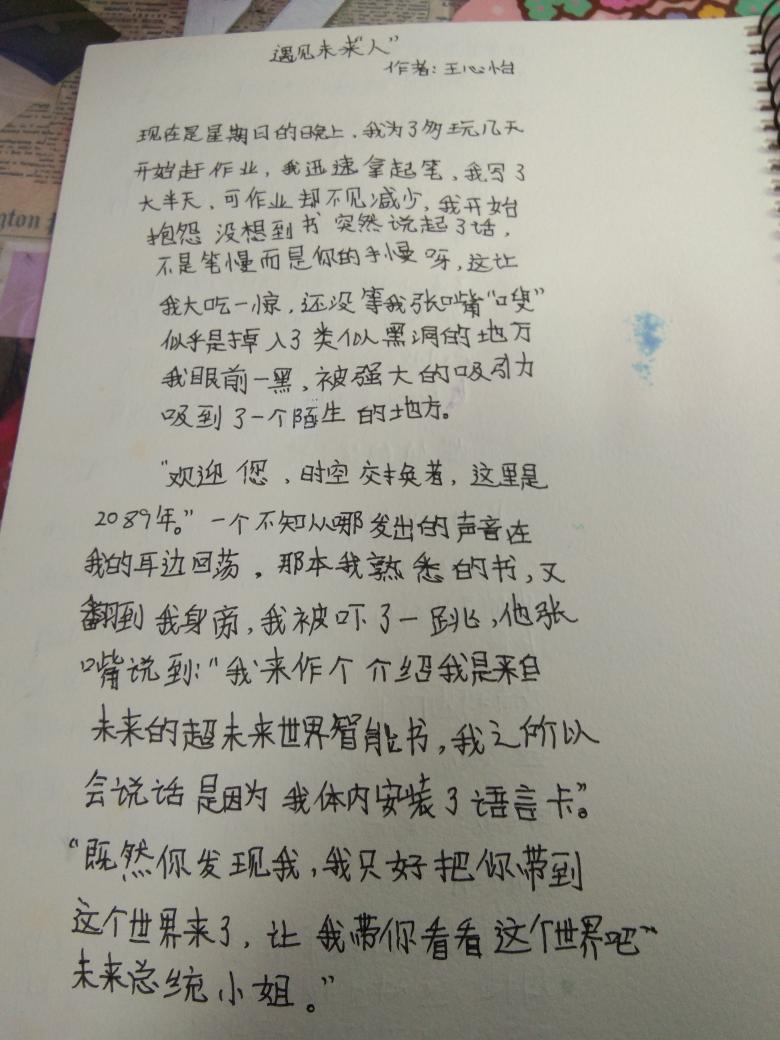 遇见未来“人”
作者:王心怡
现在是星期日的晚上,我为了多玩几天
开始赶作业,我迅速拿起笔,我写了
大半天,可作业却不见减少,我开始
抱怨 没想到书 突然说起了话,
不是笔慢而是你的手慢呀,这让
我大吃一惊,还没等我张嘴“嗖”
似乎是掉入了类似黑洞的地方
我眼前一黑,被强大的吸引力
吸到了一个陌生的地方。
“欢迎您,时空交换者,这里是
2089年。”一个不知从哪发出的声音在
我的耳边回荡,那本我熟悉的书,又
翻到我身旁,我被吓了一跳,他张
嘴说到:“我来作个介绍我是来自
未来的超未来世界智能书,我之所以
会说话是因为我体内安装了语言卡”。
“既然你发现我,我只好把你带到
这个世界来了,让我带你看看这个世界吧~
未来总统小姐。”
ton